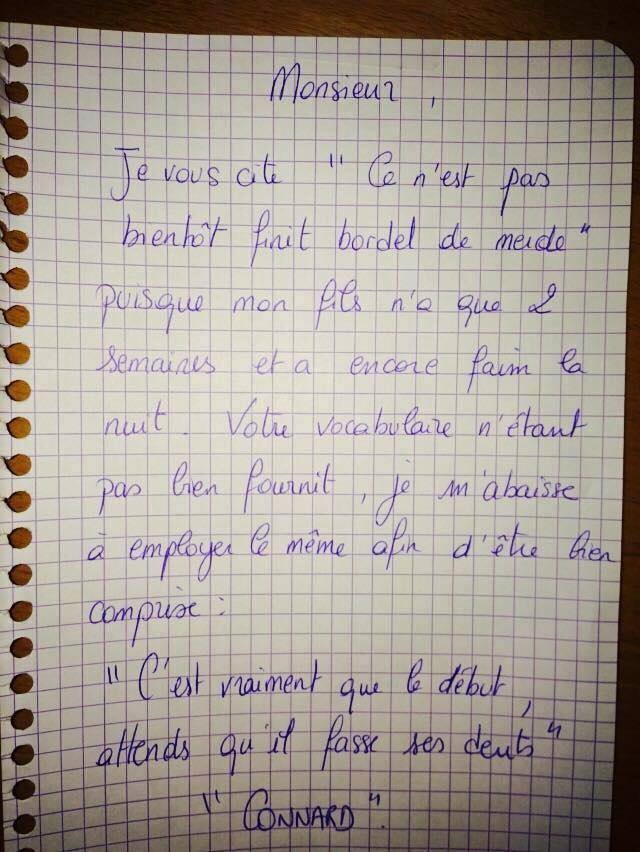 Monsieur,
Je vous cite " Ce n'est pas
bientôt finit bordel de merde "
puisque mon fils n'a que 2
semaines et a encore faim la
nuit. Votre vocabulaire n'étant
pas bien fournit, je m'abaisse
à employer le même afin d'être bien
comprise :
" C'est vraiment que le début,
attends qu'il fasse ses dents "
" CONNARD ".